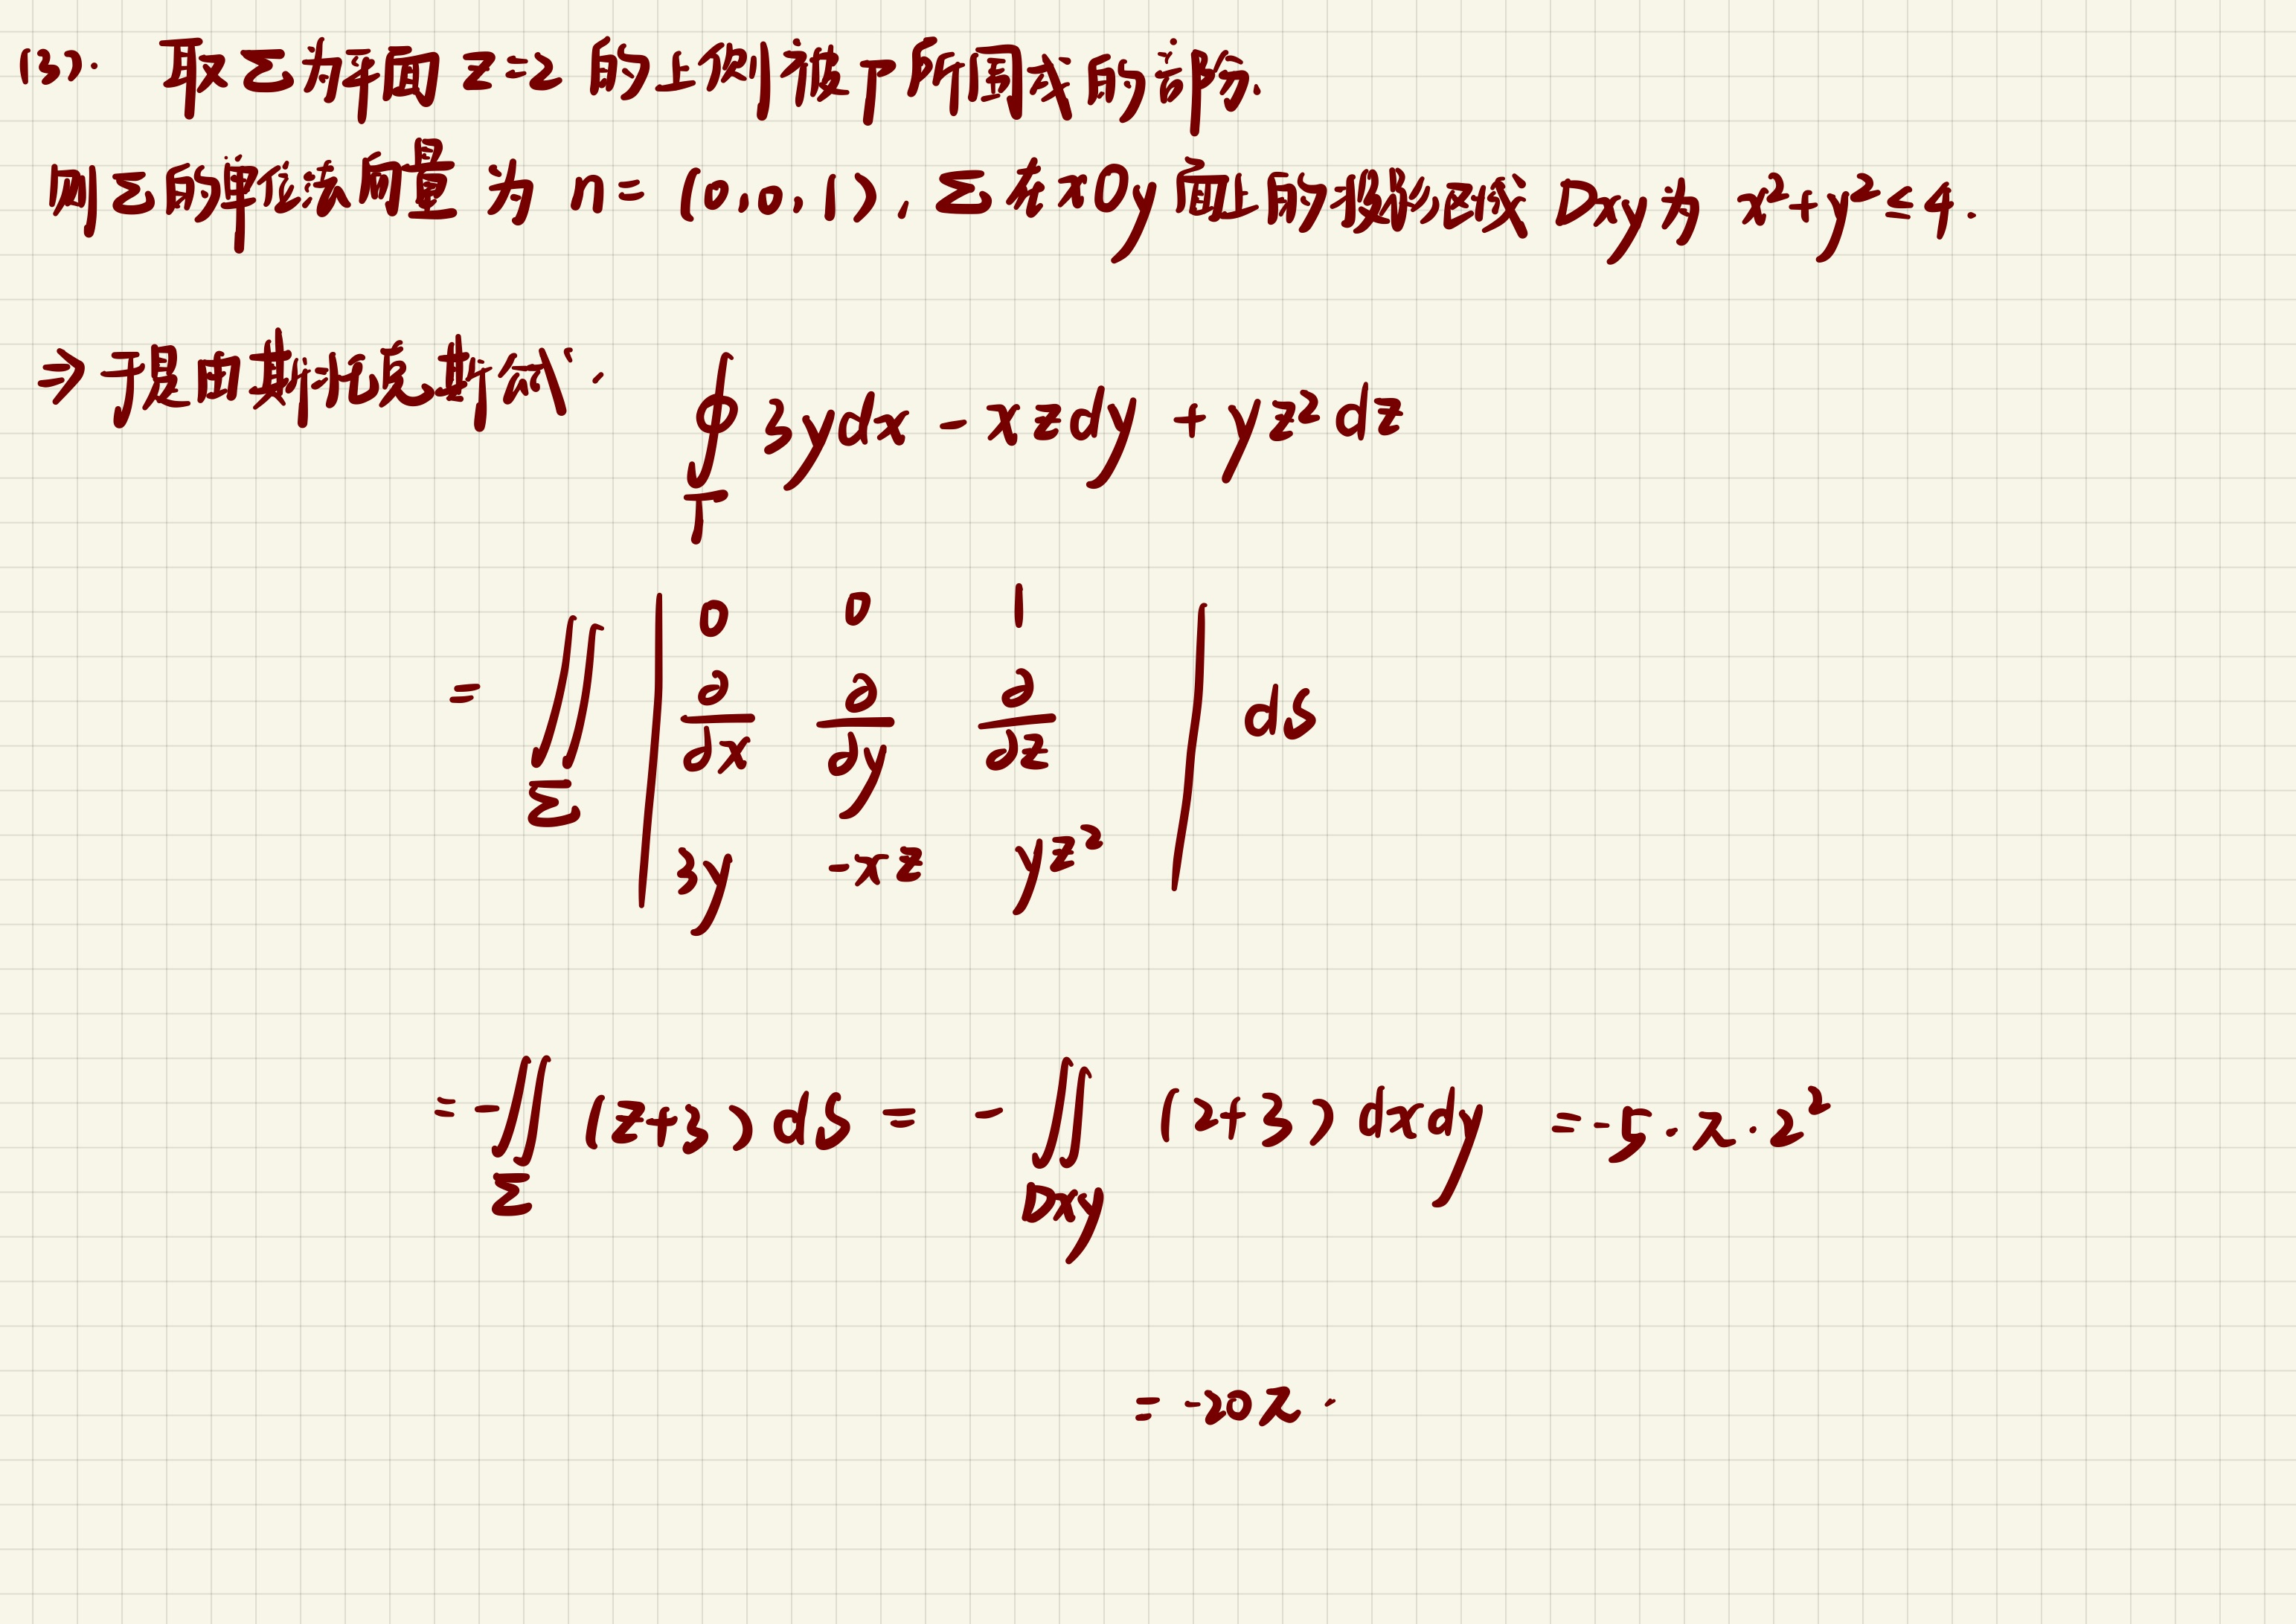 (3). 取Σ为平面 z=2 的上侧被Γ所围成的部分.
则Σ的单位法向量为 n=(0,0,1), Σ在xOy面上的投影区域 Dxy为 x²+y²≤4.
⇒于是由斯托克斯公式. ∮Γ 3ydx - xzdy + yz²dz
= ∬Σ | 0 0 1 ; ∂/∂x ∂/∂y ∂/∂z ; 3y -xz yz² | dS
= -∬Σ (z+3)dS = -∬Dxy (2+3)dxdy = -5·π·2²
= -20π.